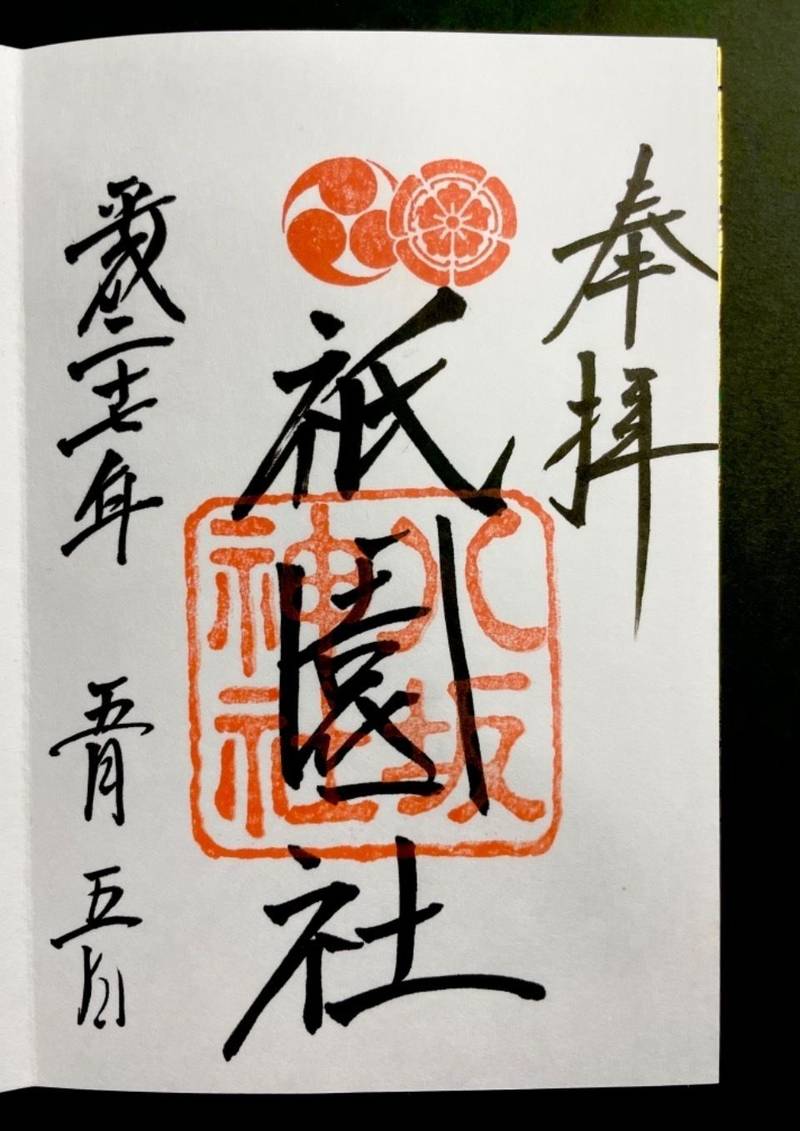 奉拝
祇園社
八坂
神社
平成二十七年 五月 五日